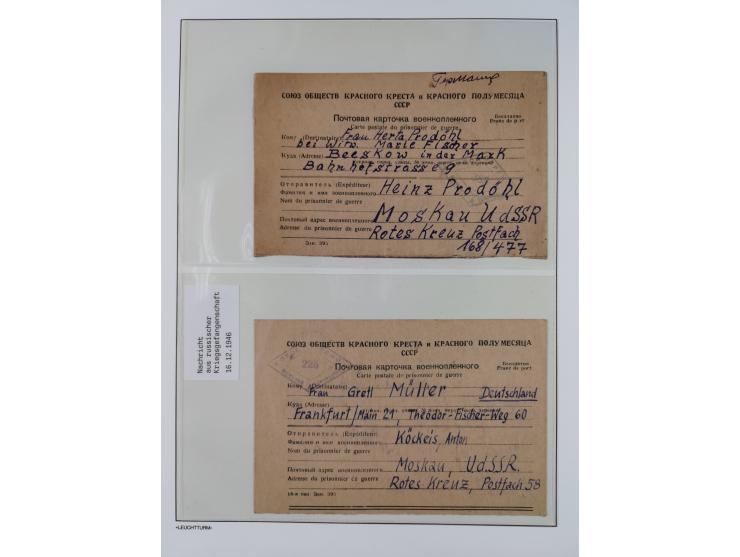 Германия
СОЮЗ ОБЩЕСТВ КРАСНОГО КРЕСТА и КРАСНОГО ПОЛУМЕСЯЦА
СССР
Почтовая карточка военнопленного
Бесплатно
Carte postale du prisonnier de guerre
Franc de port
Кому (Destinataire) Frau Herta Prodöhl
bei Witw. Marie Fischer
Куда (Adresse) Beeskow in der Mark
Bahnhofstrasse 9
Отправитель (Expéditeur)
Фамилия и имя военнопленного Heinz Prodöhl
Nom du prisonnier de guerre
Почтовый адрес военнопленного Moskau UdSSR
Adresse du prisonnier de guerre Rotes Kreuz Postfach
168/477
Зак. 391
Nachricht
aus russischer
Kriegsgefangenschaft
16.12.1946
СОЮЗ ОБЩЕСТВ КРАСНОГО КРЕСТА и КРАСНОГО ПОЛУМЕСЯЦА
СССР
226
Почтовая карточка военнопленного
Бесплатно
Carte postale du prisonnier de guerre
Franc de port
Кому (Destinataire) Frau Gretl Müller Deutschland
Куда (Adresse)
Frankfurt/Main 21, Theodor-Fischer-Weg 60
Отправитель (Expéditeur)
Фамилия и имя военнопленного Köckeis, Anton
Nom du prisonnier de guerre
Почтовый адрес военнопленного Moskau, UdSSR.
Adresse du prisonnier de guerre Rotes Kreuz, Postfach 58
Зак. 391
•LEUCHTTURM•